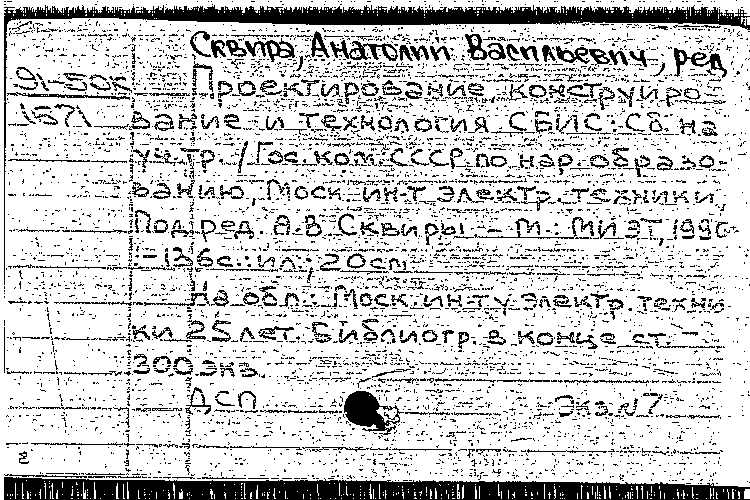 Сквира, Анатолий Васильевич, ред
91-50к Проектирование, конструиро-
1571 вание и технология СБИС: Сб. на
уч. тр. / Гос. ком. СССР по нар. образо-
ванию, Моск. ин-т электр. техники;
Под ред. А.В. Сквиры. – М.: МИЭТ, 1990.
– 136с.: ил.; 20см
На обл.: Моск. ин-ту электр. техни
ки 25 лет. Библиогр. в конце ст. –
300 экз.
ДСП Экз. N7